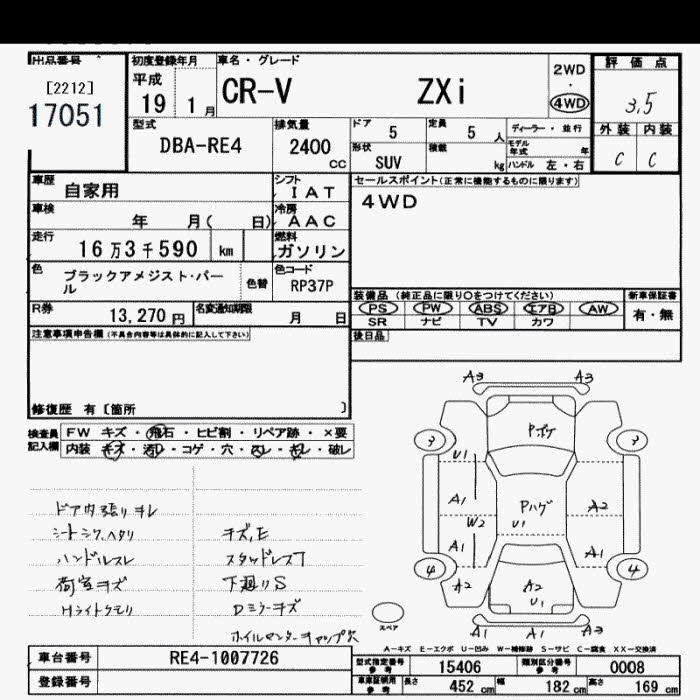 出品番号 初度登録年月 車名・グレード 評価点
[2212] 平成 CR-V ZXi 2WD・4WD 3.5
17051 19 1月
型式 排気量 ドア 5 定員 5人 ディーラー・並行 外装 内装
DBA-RE4 2400cc 形状 SUV 積載 kg モデル年式 年 C C
ハンドル 左・右
車歴 自家用 シフト IAT セールスポイント(正常に機能するものに限ります)
車検 年 月( 日) 冷房 AAC 4WD
走行 16万3千590 km 燃料 ガソリン
色 ブラックアメジスト・パール 色替 色コード RP37P
装備品 (純正品に限り○をつけてください) 新車保証書
R券 13,270円 名変通知期限 月 日 PS PW ABS エアB AW 有・無
SR ナビ TV カワ
注意事項申告欄(不具合内容等は具体的に記入して下さい) 後日品
修復歴 有〔箇所 〕
検査員記入欄 FW キズ・飛石・ヒビ割・リペア跡・×要
内装 キズ・汚レ・コゲ・穴・スレ・キレ・破レ
ドア内張りキレ
シートシワ、ヘタリ キズ,E
ハンドルスレ スタッドレスT
荷室キズ 下廻りS
Hライトクモリ Dミラーキズ
ホイルセンターキャップ欠
A3 A3
3 Pボケ 3
U1
A1 Pハゲ A2
W2 U1
A1 A1
4 A2 A2 4
U1
スペア A1 A1 A3
A-キズ E-エクボ U-凹み W-補修跡 S-サビ C-腐食 XX-交換済
車台番号 RE4-1007726 型式指定番号 参考 15406 類別区分番号 参考 0008
登録番号 車庫証明用 参考 長さ 452cm 幅 182cm 高さ 169cm